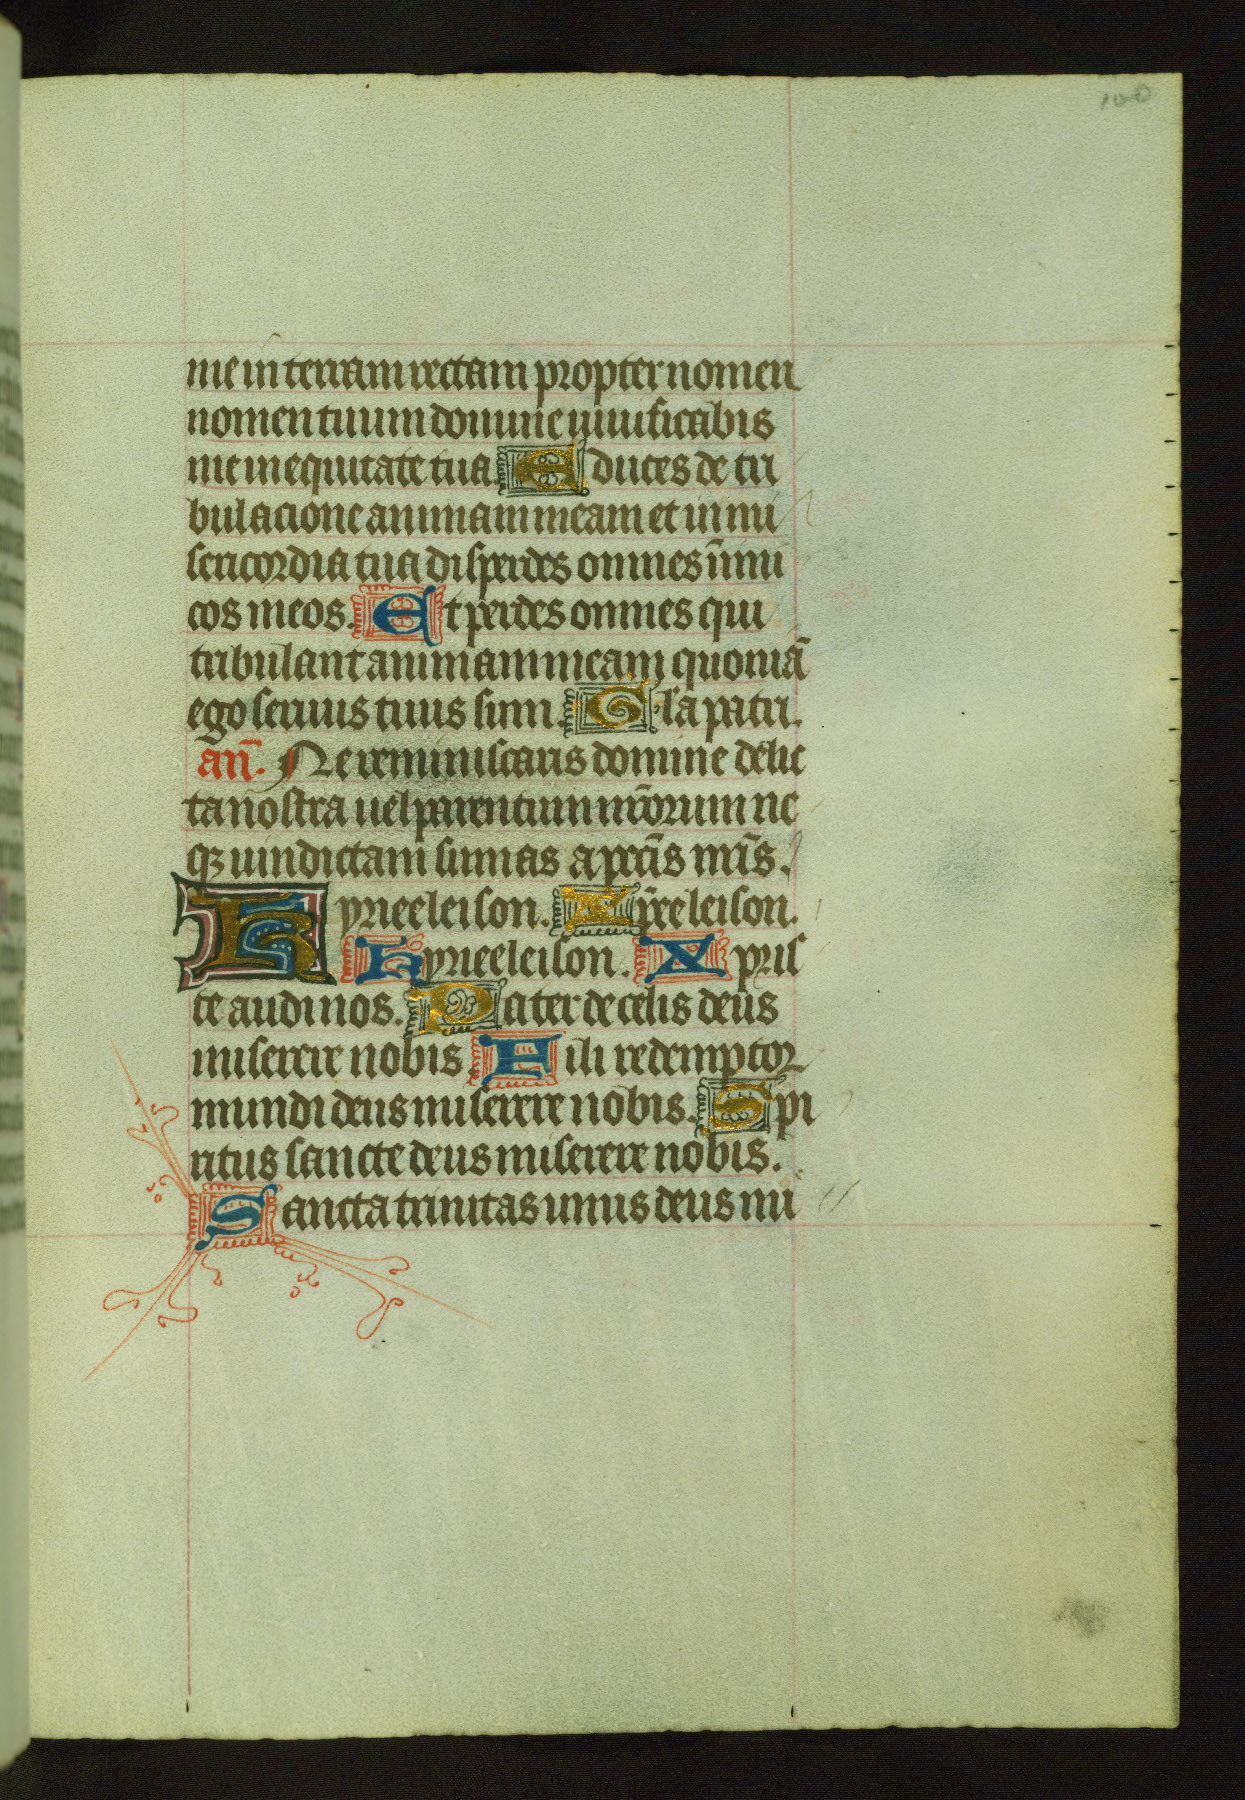 100
me in terram rectam propter nomen
nomen tuum domine uiuificabis
me in equitate tua. Educes de tri
bulacione animam meam et in mi
sericordia tua disperdes omnes inimi
cos meos. Et perdes omnes qui
tribulant animam meam quoniā
ego seruus tuus sum. Gl'a patri.
an̄. Ne reminiscaris domine delic
ta nostra uel parentum nr̄orum ne
qȝ uindictam sumas a pcc̄īs nr̄īs.
Kyrieeleison. Xp̄eeleison.
Kyrieeleison. Xpris
te audi nos. Pater de celis deus
miserere nobis. Fili redemptor
mundi deus miserere nobis. Spi
ritus sancte deus miserere nobis.
Sancta trinitas unus deus mi